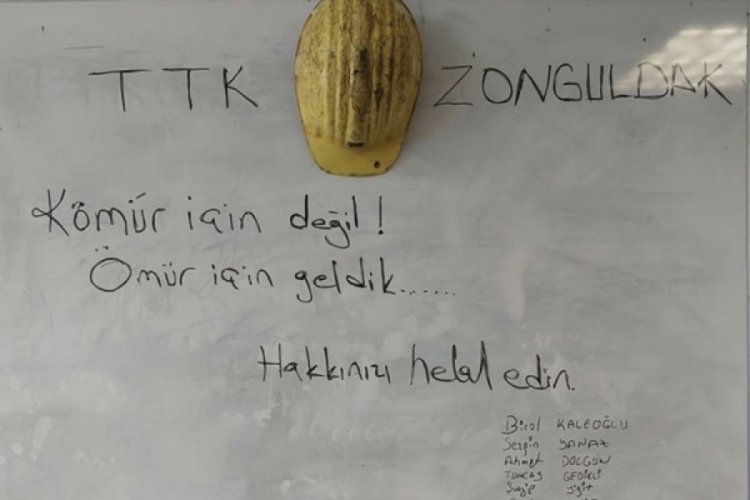 TTK ZONGULDAK
Kömür için değil!
Ömür için geldik.......
Hakkınızı helal edin.
Birol KALEOĞLU
Sezgin
Ahmet DOLGUN
TUNCAY GEDİKLİ
Yiğit